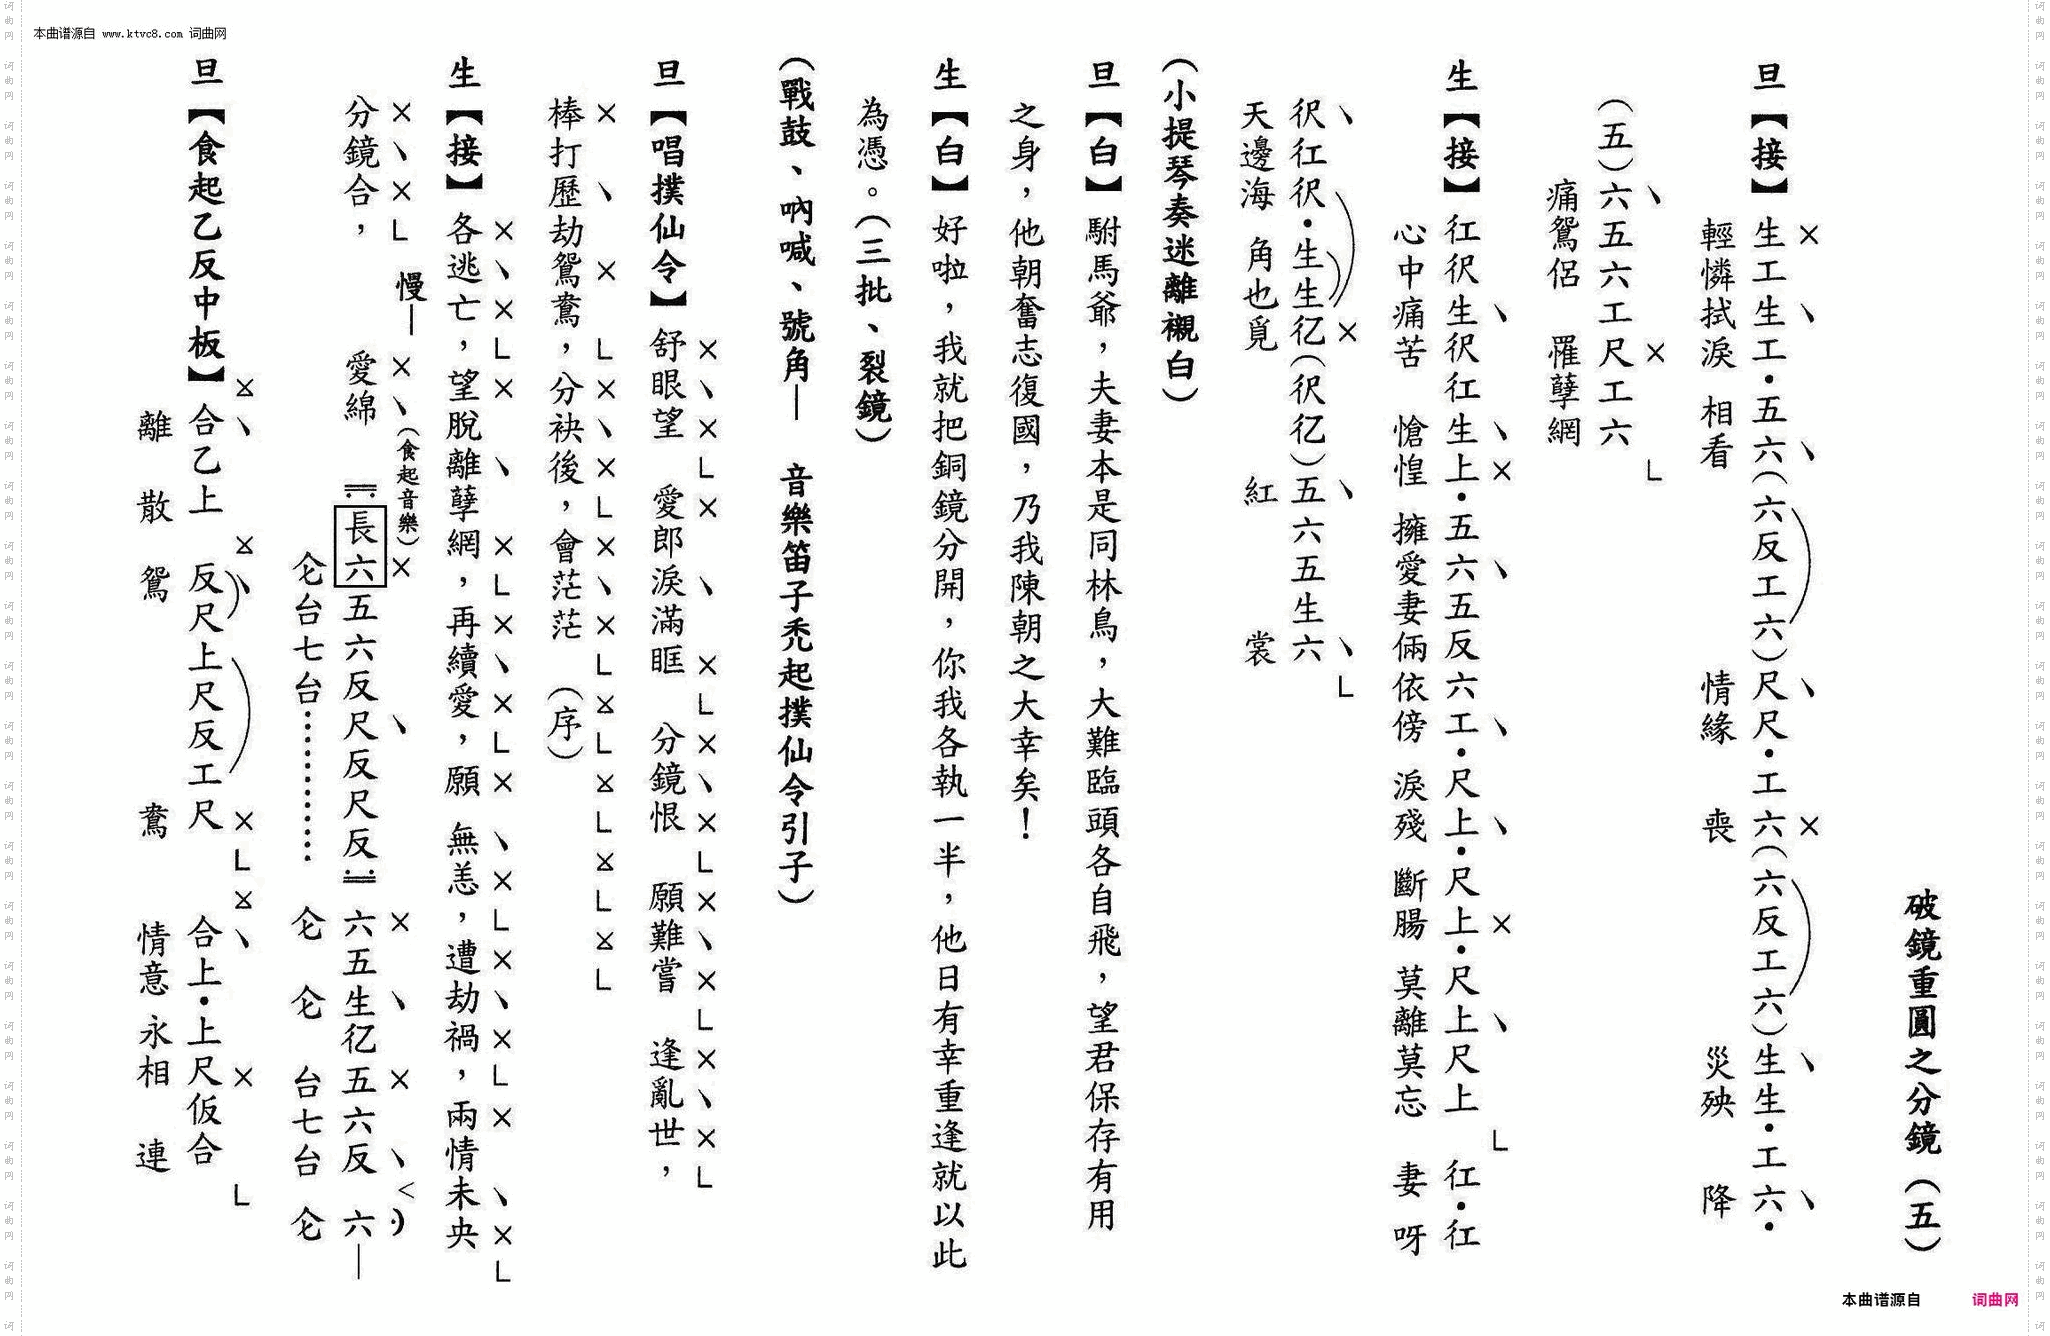 本曲谱源自 www.ktvc8.com 词曲网
破鏡重圓之分鏡（五）
旦【接】生工生工·五六（六反工六）尺尺·工六（六反工六）生生·工六·
輕憐拭淚 相看 情緣 喪 災殃 降
（五）六五六工尺工六
痛鴛侶 罹孽網
生【接】仜伬生伬仜生上·五六五反六工·尺上·尺上·尺上尺上 仜·仜
心中痛苦 愴惶 擁愛妻倆依傍 淚殘 斷腸 莫離莫忘 妻 呀
伬仜伬·生生亿（伬亿）五六五生六
天邊海 角也覓 紅 裳
（小提琴奏迷離襯白）
旦【白】駙馬爺，夫妻本是同林鳥，大難臨頭各自飛，望君保存有用
之身，他朝奮志復國，乃我陳朝之大幸矣！
生【白】好啦，我就把銅鏡分開，你我各執一半，他日有幸重逢就以此
為憑。（三批、裂鏡）
（戰鼓、吶喊、號角— 音樂笛子禿起撲仙令引子）
× ヽ × L × ヽ × L × ヽ × L × ヽ × L × ヽ × L
旦【唱撲仙令】舒眼望 愛郎淚滿眶 分鏡恨 願難嘗 逢亂世，
棒打歷劫鴛鴦，分袂後，會茫茫 （序）
生【接】各逃亡，望脫離孽網，再續愛，願 無恙，遭劫禍，兩情未央
慢— （食起音樂）
分鏡合， 愛綿 長六五六反尺反尺反 六五生亿五六反 六—
仑台七台………… 仑 仑 台七台 仑
旦【食起乙反中板】合乙上 反尺上尺反工尺 合上·上尺仮合
離 散 鴛 鴦 情意永相 連
本曲谱源自 词曲网